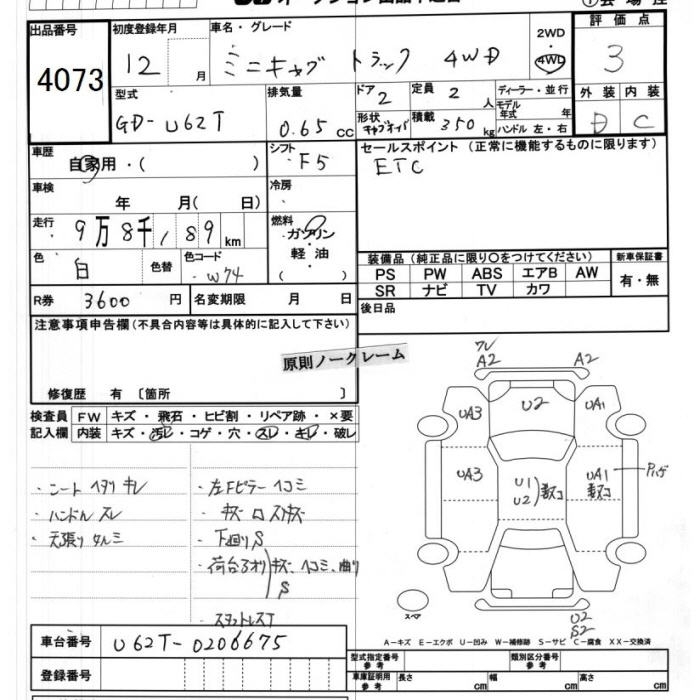 オークション出品申込書
出品番号
4073
初度登録年月
12 月
車名・グレード
ミニキャブ トラック 4WD
2WD
4WD
評価点
3
型式
GD-U62T
排気量
0.65 cc
ドア
2
定員
2 人
ディーラー・並行
モデル年式 年
ハンドル 左・右
形状
積載
350 kg
外装
D
内装
C
車歴
自家用・( )
シフト
F5
セールスポイント (正常に機能するものに限ります)
ETC
車検
年 月( 日)
冷房
走行
9万8千189 km
燃料
ガソリン
軽油
( )
色
白
色替
色コード
W74
装備品 (純正品に限り〇をつけてください)
PS PW ABS エアB AW
SR ナビ TV カワ
新車保証書
有・無
R券 3600 円
名変期限 月 日
後日品
注意事項申告欄(不具合内容等は具体的に記入して下さい)
原則ノークレーム
修復歴 有 〔箇所 〕
検査員記入欄
FW キズ・飛石・ヒビ割・リペア跡・×要
内装 キズ・汚レ・コゲ・穴・スレ・キレ・破レ
・シート ヘタリ キレ
・ハンドル スレ
・天張り タルミ
・左Fピラー ヘコミ
・下廻り S
・荷台アオリ キズ、ヘコミ、曲り
S
・スタットレスT
ワレ
A2
A2
UA3
U2
UA1
UA3
U1
U2
UA1
スペア
U2
S2
A-キズ E-エクボ U-凹み W-補修跡 S-サビ C-腐食 XX-交換済
車台番号
U62T-0206675
登録番号
型式指定番号
参考
類別区分番号
参考
車庫証明用
参考
長さ cm
幅 cm
高さ cm